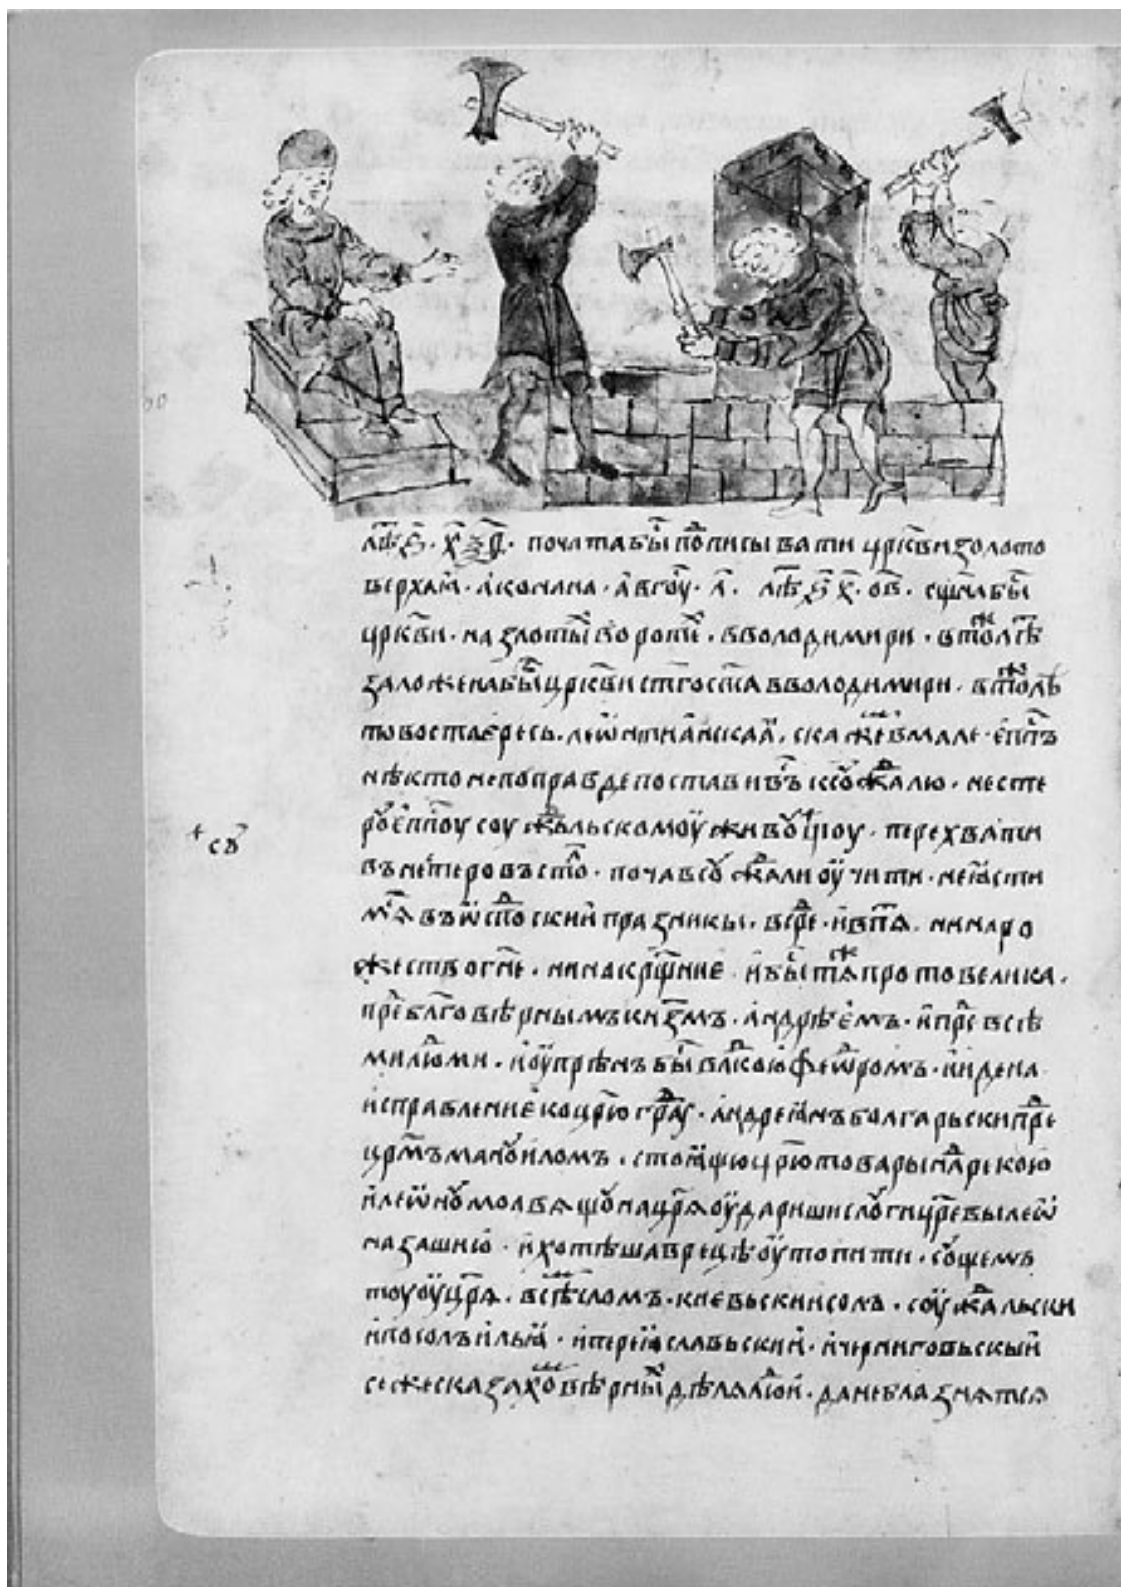 лѣ҃т ѕ҃ х҃ ѯ҃ѳ почата бы҃ пописывати црк҃ви золото
верхаꙗ а кончана авгоу҃ л҃ лѣ҃ ѕ҃ х҃ ов҃ сщ҃на бы҃
црк҃ви на злоты воротѣ в володимири в то лѣ҃т
заложена бы҃ црк҃ви ст҃го сп҃са в володимири в то лѣ
то воста ересь леѡнтианьскаꙗ скаже вмале еп҃пъ
нѣкто не по правде поставивъ к соужалю несте
роу еп҃поу соужальскомоу живоу соущоу перехвати
въ нестеровъ сто почав соужали оучити не ꙗсти
мѧ въ ѡсподский празникы в сре и в пѧ ни на ро
жество гн҃е ни на крщ҃ние и бы тѧ про то велика
пре бл҃говѣрнымъ кнѧземъ андрѣемъ и пре всѣ
ми людми и оупрѣнъ бы влко҃ю феѡдромъ и иде на
исправление ко цр҃ю граду андреꙗнъ болгарьски пре
цр҃мъ маноуиломъ стоꙗщю цр҃ю товары на рекою
и леѡноу молвѧщоу на цр҃ѧ оударишисѧ слоуги цр҃евы леѡ
на за шию и хотѣша в рецѣ оутопити соущемъ
тоу оу цр҃ѧ всѣ сломъ киевьски и солъ соужальски
и посолъ илья и переꙗславьский и черниговьскый
се же сказахо вѣрны дѣлѧ люди да не блазнѧтсѧ
соу